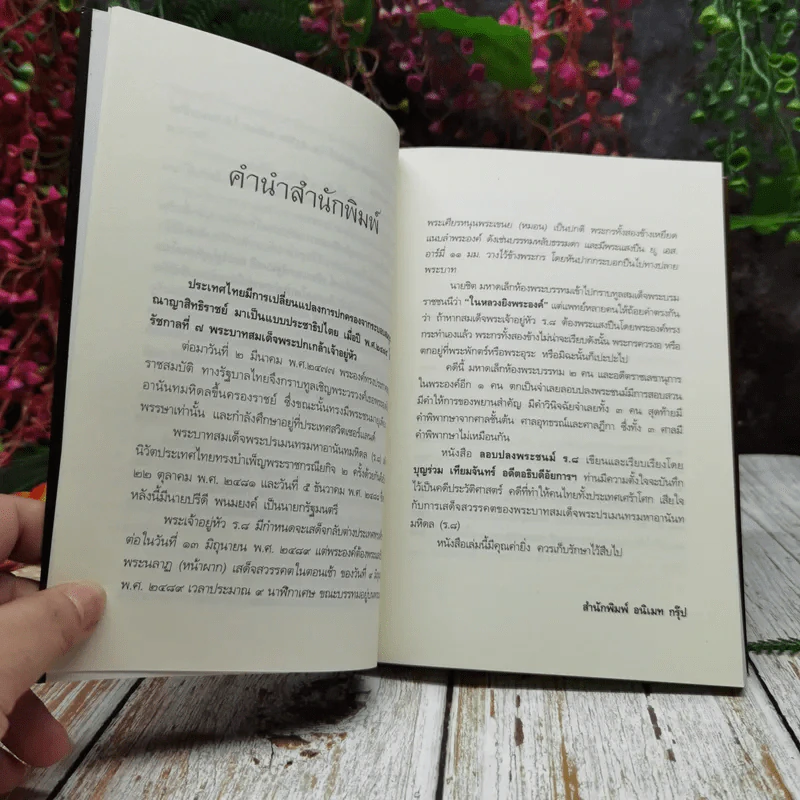 คำนำสำนักพิมพ์
ประเทศไทยมีการเปลี่ยนแปลงการปกครองจากระบอบ
ณาญาสิทธิราชย์ มาเป็นแบบประชาธิปไตย เมื่อปี พ.ศ.
รัชกาลที่ ๗ พระบาทสมเด็จพระปกเกล้าเจ้าอยู่หัว
ต่อมาวันที่ ๒ มีนาคม พ.ศ.๒๔๗๗ พระองค์ทรงประกาศ
ราชสมบัติ ทางรัฐบาลไทยจึงกราบทูลเชิญพระวรวงศ์เธอ
อานันทมหิดลขึ้นครองราชย์ ซึ่งขณะนั้นทรงมีพระชนมายุ
พรรษาเท่านั้น และกำลังศึกษาอยู่ที่ประเทศสวิตเซอร์แลนด์
พระบาทสมเด็จพระปรเมนทรมหาอานันทมหิดล (ร.๘)
นิวัตประเทศไทยทรงบำเพ็ญพระราชกรณียกิจ ๒ ครั้งด้วยกัน
๒๒ ตุลาคม พ.ศ. ๒๔๘๑ และวันที่ ๕ ธันวาคม พ.ศ. ๒๔๘๘
หลังนี้มีนายปรีดี พนมยงค์ เป็นนายกรัฐมนตรี
พระเจ้าอยู่หัว ร.๘ มีกำหนดจะเสด็จกลับต่างประเทศ
ต่อในวันที่ ๑๓ มิถุนายน พ.ศ. ๒๔๘๙ แต่พระองค์ต้องพระ
พระนลาฏ (หน้าผาก) เสด็จสวรรคตในตอนเช้า ของวันที่ ๙
พ.ศ. ๒๔๘๙ เวลาประมาณ ๙ นาฬิกาเศษ ขณะบรรทมอยู่บน
พระเศียรหนุนพระเขนย (หมอน) เป็นปกติ พระกรทั้งสองข้างเหยียด
แนบลำพระองค์ ดังเช่นบรรทมหลับธรรมดา และมีพระแสงปืน ยู.เอส.
อาร์มี่ ๑๑ มม. วางไว้ข้างพระกร โดยหันปากกระบอกปืนไปทางปลาย
พระบาท
นายชิต มหาดเล็กห้องพระบรรทมเข้าไปกราบทูลสมเด็จพระบรม
ราชชนนีว่า "ในหลวงยิงพระองค์" แต่แพทย์หลายคนให้ถ้อยคำตรงกัน
ว่า ถ้าหากสมเด็จพระเจ้าอยู่หัว ร.๘ ต้องพระแสงปืนโดยพระองค์ทรง
กระทำเองแล้ว พระกรทั้งสองข้างไม่น่าจะเรียบดังนั้น พระกรควรงอ หรือ
ตกอยู่ที่พระพักตร์หรือพระอุระ หรือมิฉะนั้นก็เปะปะไป
คดีนี้ มหาดเล็กห้องพระบรรทม ๒ คน และอดีตราชเลขานุการ
ในพระองค์อีก ๑ คน ตกเป็นจำเลยลอบปลงพระชนม์มีการสอบสวน
มีคำให้การของพยานสำคัญ มีคำวินิจฉัยจำเลยทั้ง ๓ คน สุดท้ายมี
คำพิพากษาจากศาลชั้นต้น ศาลอุทธรณ์และศาลฎีกา ซึ่งทั้ง ๓ ศาลมี
คำพิพากษาไม่เหมือนกัน
หนังสือ ลอบปลงพระชนม์ ร.๘ เขียนและเรียบเรียงโดย
บุญร่วม เทียมจันทร์ อดีตอธิบดีอัยการฯ ท่านมีความตั้งใจจะบันทึก
ไว้เป็นคดีประวัติศาสตร์ คดีที่ทำให้คนไทยทั้งประเทศเศร้าโศก เสียใจ
กับการเสด็จสวรรคตของพระบาทสมเด็จพระปรเมนทรมหาอานันท
มหิดล (ร.๘)
หนังสือเล่มนี้มีคุณค่ายิ่ง ควรเก็บรักษาไว้สืบไป
สำนักพิมพ์ อนิเมท กรุ๊ป